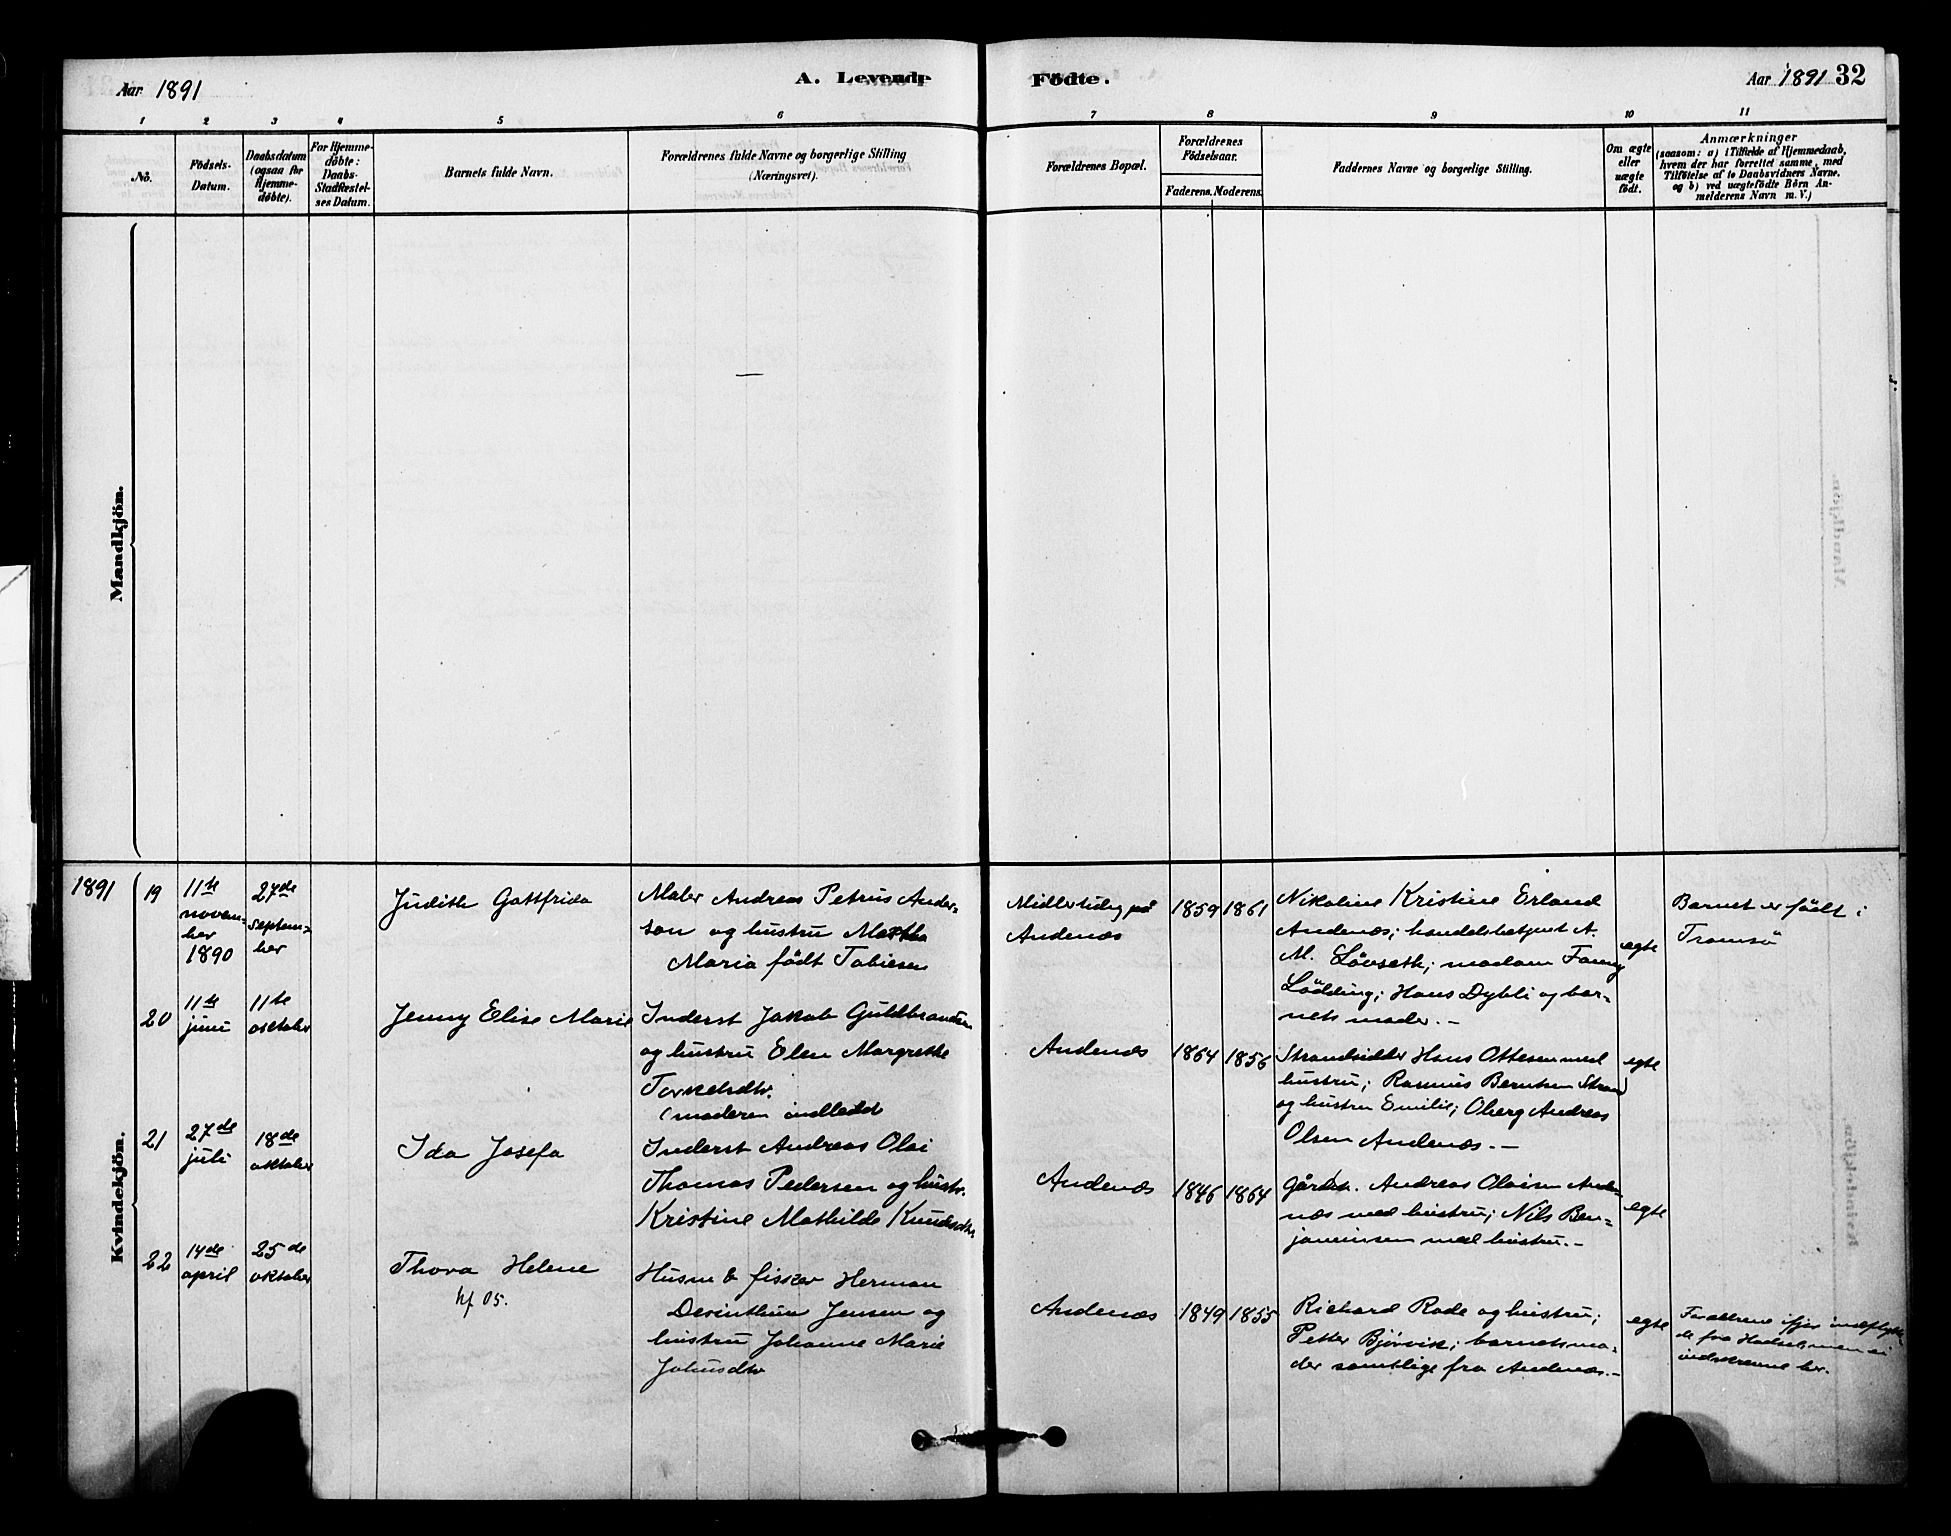 Aar 1891
A. Levende
Födte.
Aar 1891 32
1 2 3 4 5 6 7 8 9 10 11
No.
Födsels-
Datum.
Daabsdatum
(ogsaa for
Hjemme-
døbte).
For Hjemme-
døbte:
Daabs-
Stadfæstel-
ses Datum.
Barnets fulde Navn.
Forældrenes fulde Navne og borgerlige Stilling
(Næringsvei).
Forældrenes Bopæl.
Forældrenes
Födselsaar.
Faderens. Moderens.
Faddernes Navne og borgerlige Stilling.
Om ægte
eller
uægte
födt.
Anmærkninger
(saasom: a) i Tilfælde af Hjemmedaab,
hvem der har forrettet samme, med
Tilföielse af to Daabsvidners Navne.
og b) ved uægtefödte Börn An-
melderens Navn m. V.)
Mandkjön.
—
Kvindekjön.
1891
19
11te
novem-
ber
1890
27de
septem-
ber
Judith Gottfrida
Maler Andreas Petrus Ander-
son og hustru Martha
Maria født Tobiesen
Midlertidig på
Andenæs
1859 1861
Nikoline Kristine Erland
Andenæs; handelsbetjent A.
M. Løvseth; madam Fanny
Lödding; Hans Dybli og bar-
nets moder. –
egte
Barnet er født i
Tromsö
20
11te
juni
11te
october
Jenny Elise Marie
Inderst Jakob Guldbrandsen
og hustru Elen Margrethe
Torkelsdtr.
(moderen indledet
Andenæs
1864 1856
Strandsidder Hans Ottesen med
hustru; Rasmus Berntsen Strand
og hustru Emilie; Oberg Andreas
Olsen Andenæs. –
egte
21
27de
juli
18de
oktober
Ida Josefa
Inderst Andreas Olai
Thomas Pedersen og hustr.
Kristine Mathilde Knudsdtr.
Andenæs
1846 1864
Gårdbr. Andreas Olaisen Ande-
næs med hustru; Nils Ben-
jaminsen med hustru. –
egte
22
14de
april
25de
oktober
Thora Helene
kf 05.
Husm & fisker Herman
Jensen og
hustru Johanne Marie
Johnsdtr
Andenæs
1849 1855
Richard Rode og hustru;
Petter Bjørvik; barnets mo-
der samtlige fra Andenæs. –
egte
Forældrene ifjor indflytte-
de fra Hadsel, men ei
indskrevne her.